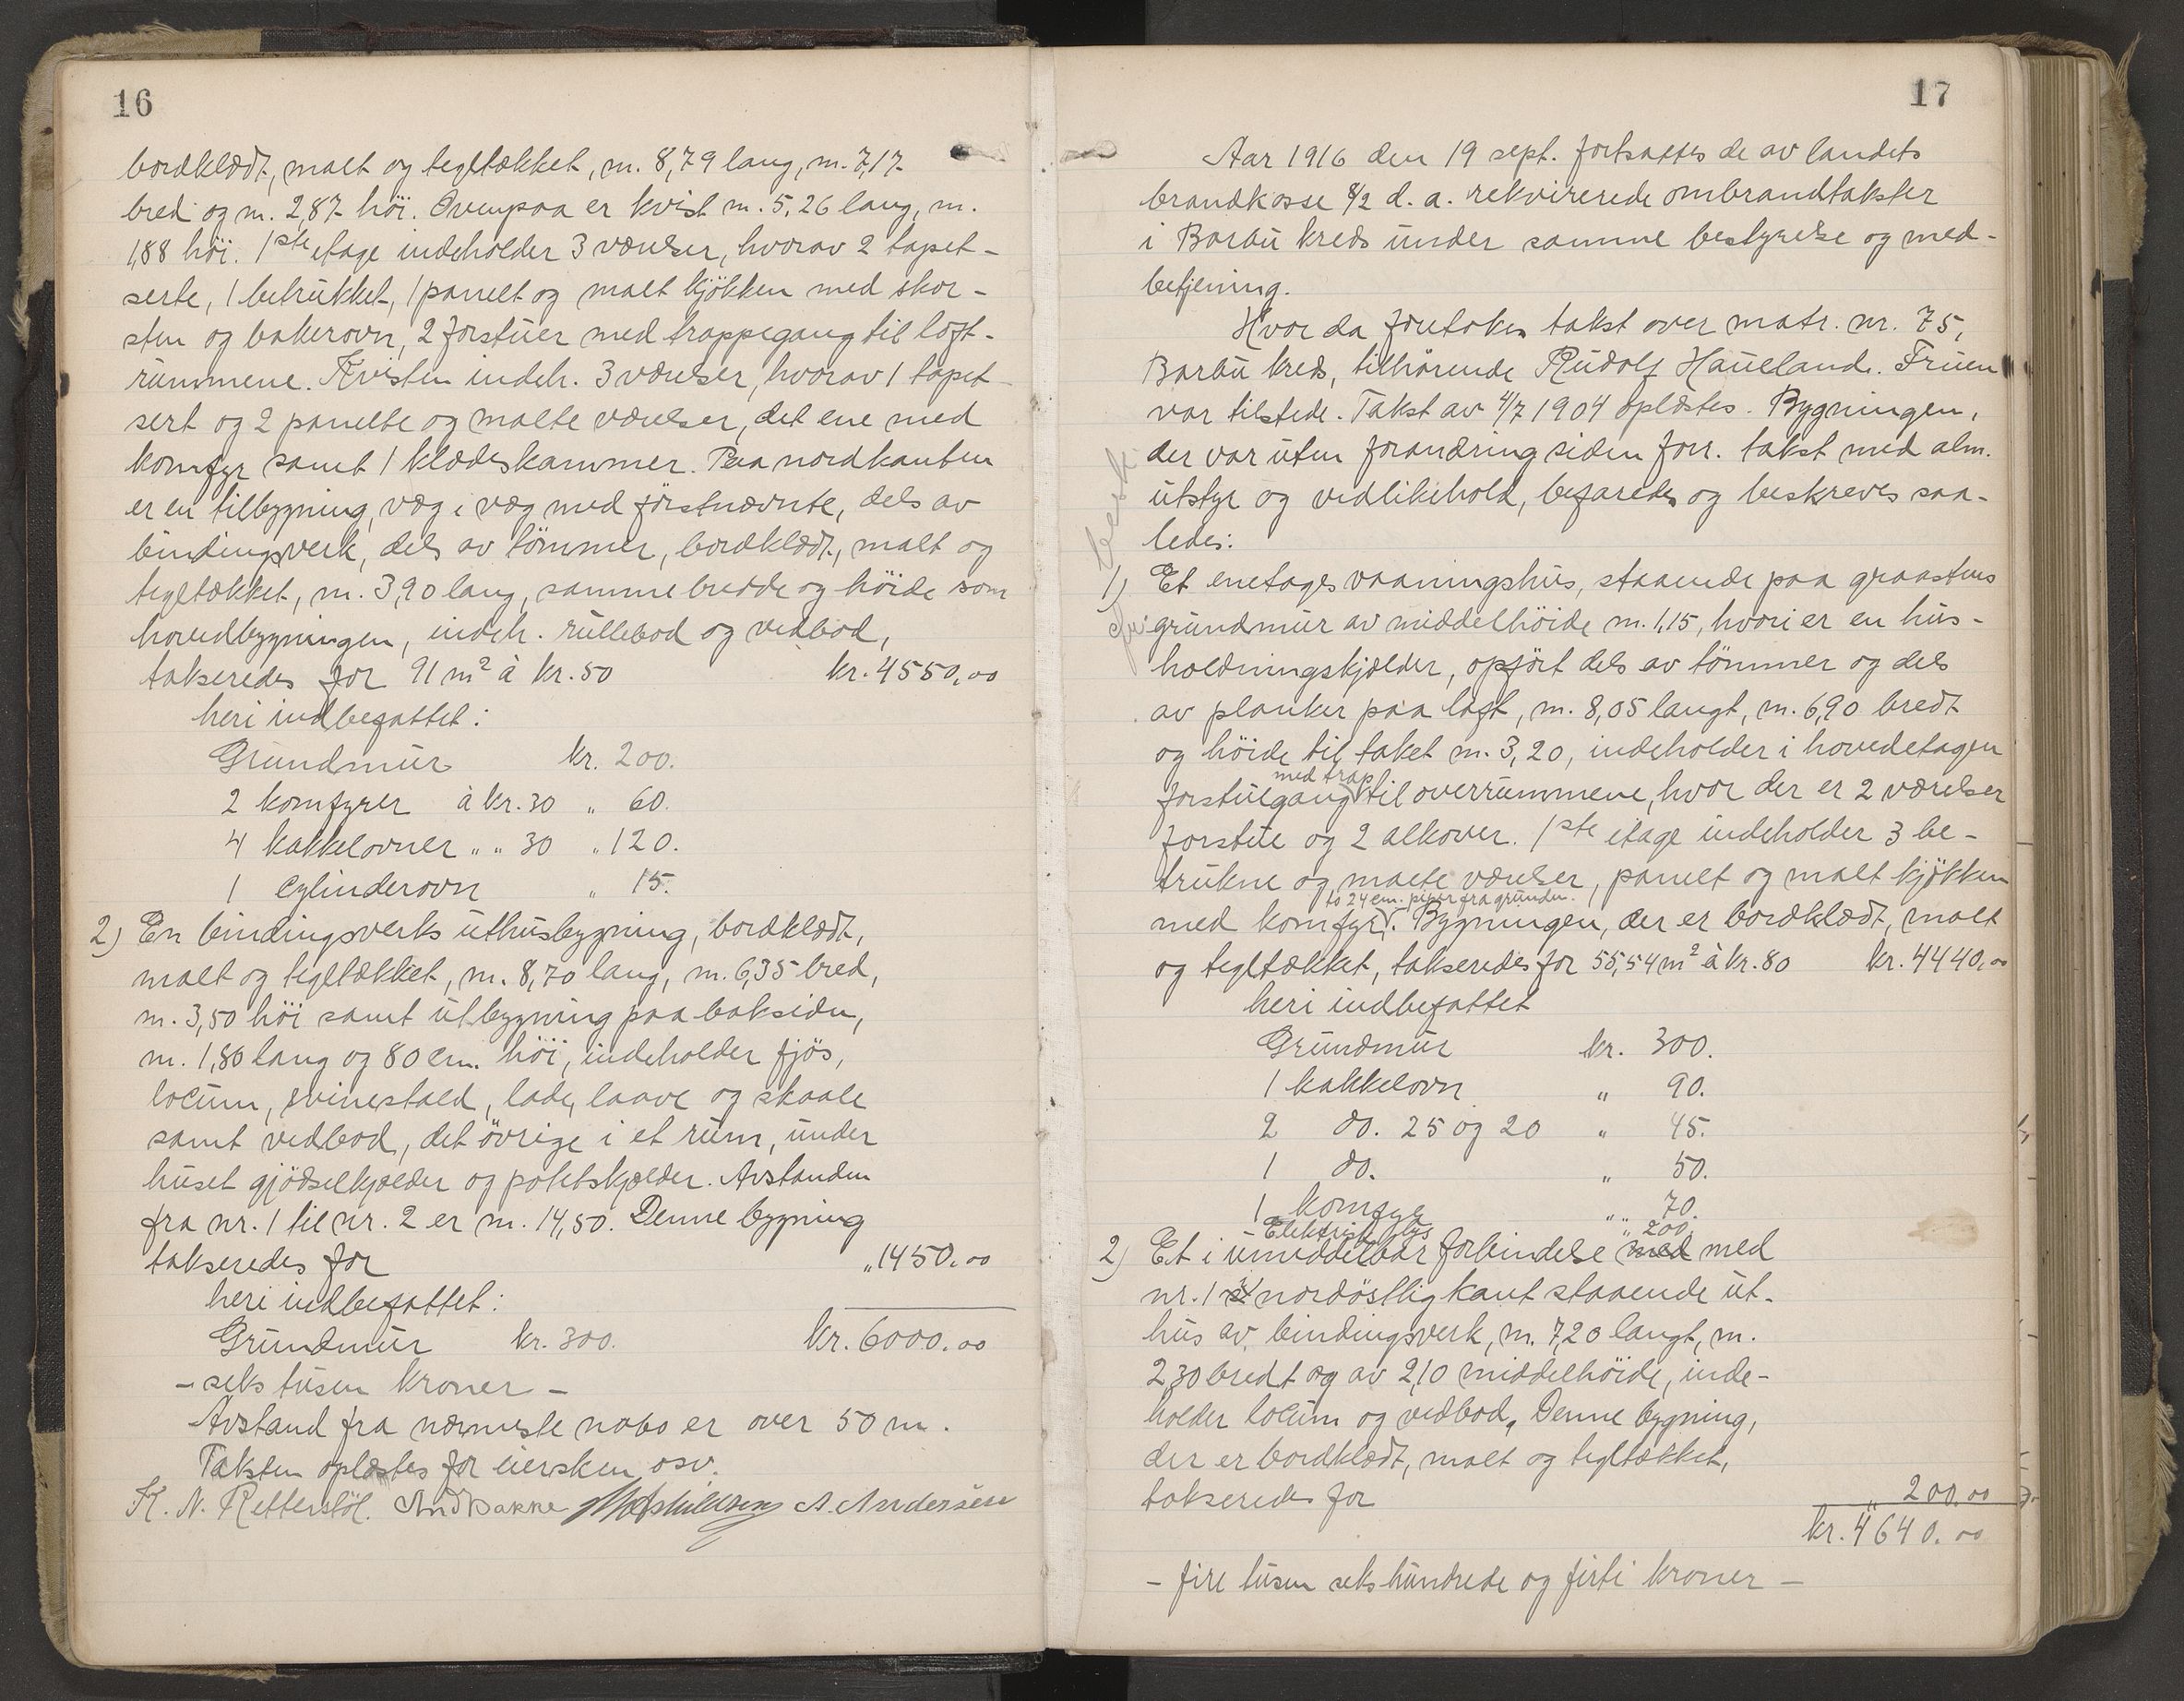 16
bordklædt, malt og tegltækket, m. 8,79 lang, m. 7,17
bred og m. 2,87 höi. Ovenpaa er kvist m. 5,26 lang, m.
1,88 höi. 1ste etage indeholder 3 værelser, hvorav 2 tapet-
serte, 1 betrukket, 1 panelt og malt kjökken med skor-
sten og bakerovn, 2 forstuer med trappegang til loft-
rummene. Kvisten indeh. 3 værelser, hvorav 1 tapet-
sert og 2 panelte og malte værelser, det ene med
komfyr samt 1 klædeskammer. Paa nordkanten
er en tilbygning, væg i væg med förstnævnte, dels av
bindingsverk, dels av tömmer, bordklædt, malt og
tegltækket, m. 3,90 lang, samme bredde og höide som
hovedbygningen, indeh. rullebod og vedbod,
takseredes for 91 m² à kr. 50 kr. 4550,00
heri indbefattet:
Grundmur kr. 200.
2 komfyrer à kr. 30 " 60.
4 kakkelovner " " 30 " 120.
1 Cylinderovn " 15.
2) En bindingsverks uthusbygning, bordklædt,
malt og tegltækket, m. 8,70 lang, m. 6,35 bred,
m. 3,50 höi samt utbygning paa baksiden,
m. 1,80 lang og 80 cm. höi, indeholder fjös,
locum, svinestald, lade, laave og skaale
samt vedbod, det övrige i et rum, under
huset gjödselkjelder og potetskjælder. Avstanden
fra nr. 1 til nr. 2 er m. 14,50. Denne bygning
takseredes for " 1450.00
heri indbefattet:
Grundmur kr. 300. kr. 6000.00
- seks tusen kroner -
Avstand fra nærmeste nabo er over 50 m.
Taksten oplæstes for eiersken osv.
K. N. Retterstöl. And Bakke A. Andersen
17
Aar 1916 den 19 sept. fortsattes de av landets
brandkasse 8/2 d. a. rekvirerede ombrandtakster
i Barbu kreds under samme bestyrelse og med-
betjening.
Hvor da foretokes takst over matr. nr. 75,
Barbu kreds, tilhörende Rudolf Haueland. Fruen
var tilstede. Takst av 4/7 1904 oplæstes. Bygningen,
der var uten forandring siden forr. takst med alm.
utstyr og vedlikehold, befaredes og beskreves saa-
ledes:
1) Et enetages vaaningshus, staaende paa graastens
grundmur av middelhöide m. 1,15, hvori er en hus-
holdningskjælder, opfört dels av tömmer og dels
av planker paa laft, m. 8,05 langt, m. 6,90 bredt
og höide til taket m. 3,20, indeholder i hovedetagen
med trap
forstuegang til overrummene, hvor der er 2 værelser
forstue og 2 alkover. 1ste etage indeholder 3 be-
trukne og malte værelser, panelt og malt kjökken
to 24 cm. piper fra grunden.
med komfyr. Bygningen, der er bordklædt, malt
og tegltækket, takseredes for 55,54 m² à kr. 80 kr. 4440,00
heri indbefattet
Grundmur kr. 300.
1 kakkelovn " 90.
2 do. 25 og 20 " 45.
1 do. " 50.
1 komfyr " " 70.
Elektrisk lys " 200.
2) Et i umiddelbar forbindelse med med
nr. 1 's nordöstlig kant staaende ut-
hus av bindingsverk, m. 7,20 langt, m.
2,30 bredt og av 2,10 middelhöide, inde-
holder locum og vedbod. Denne bygning,
der er bordklædt, malt og tegltækket,
takseredes for " 200.00
kr. 4640.00
- fire tusen seks hundrede og firti kroner -